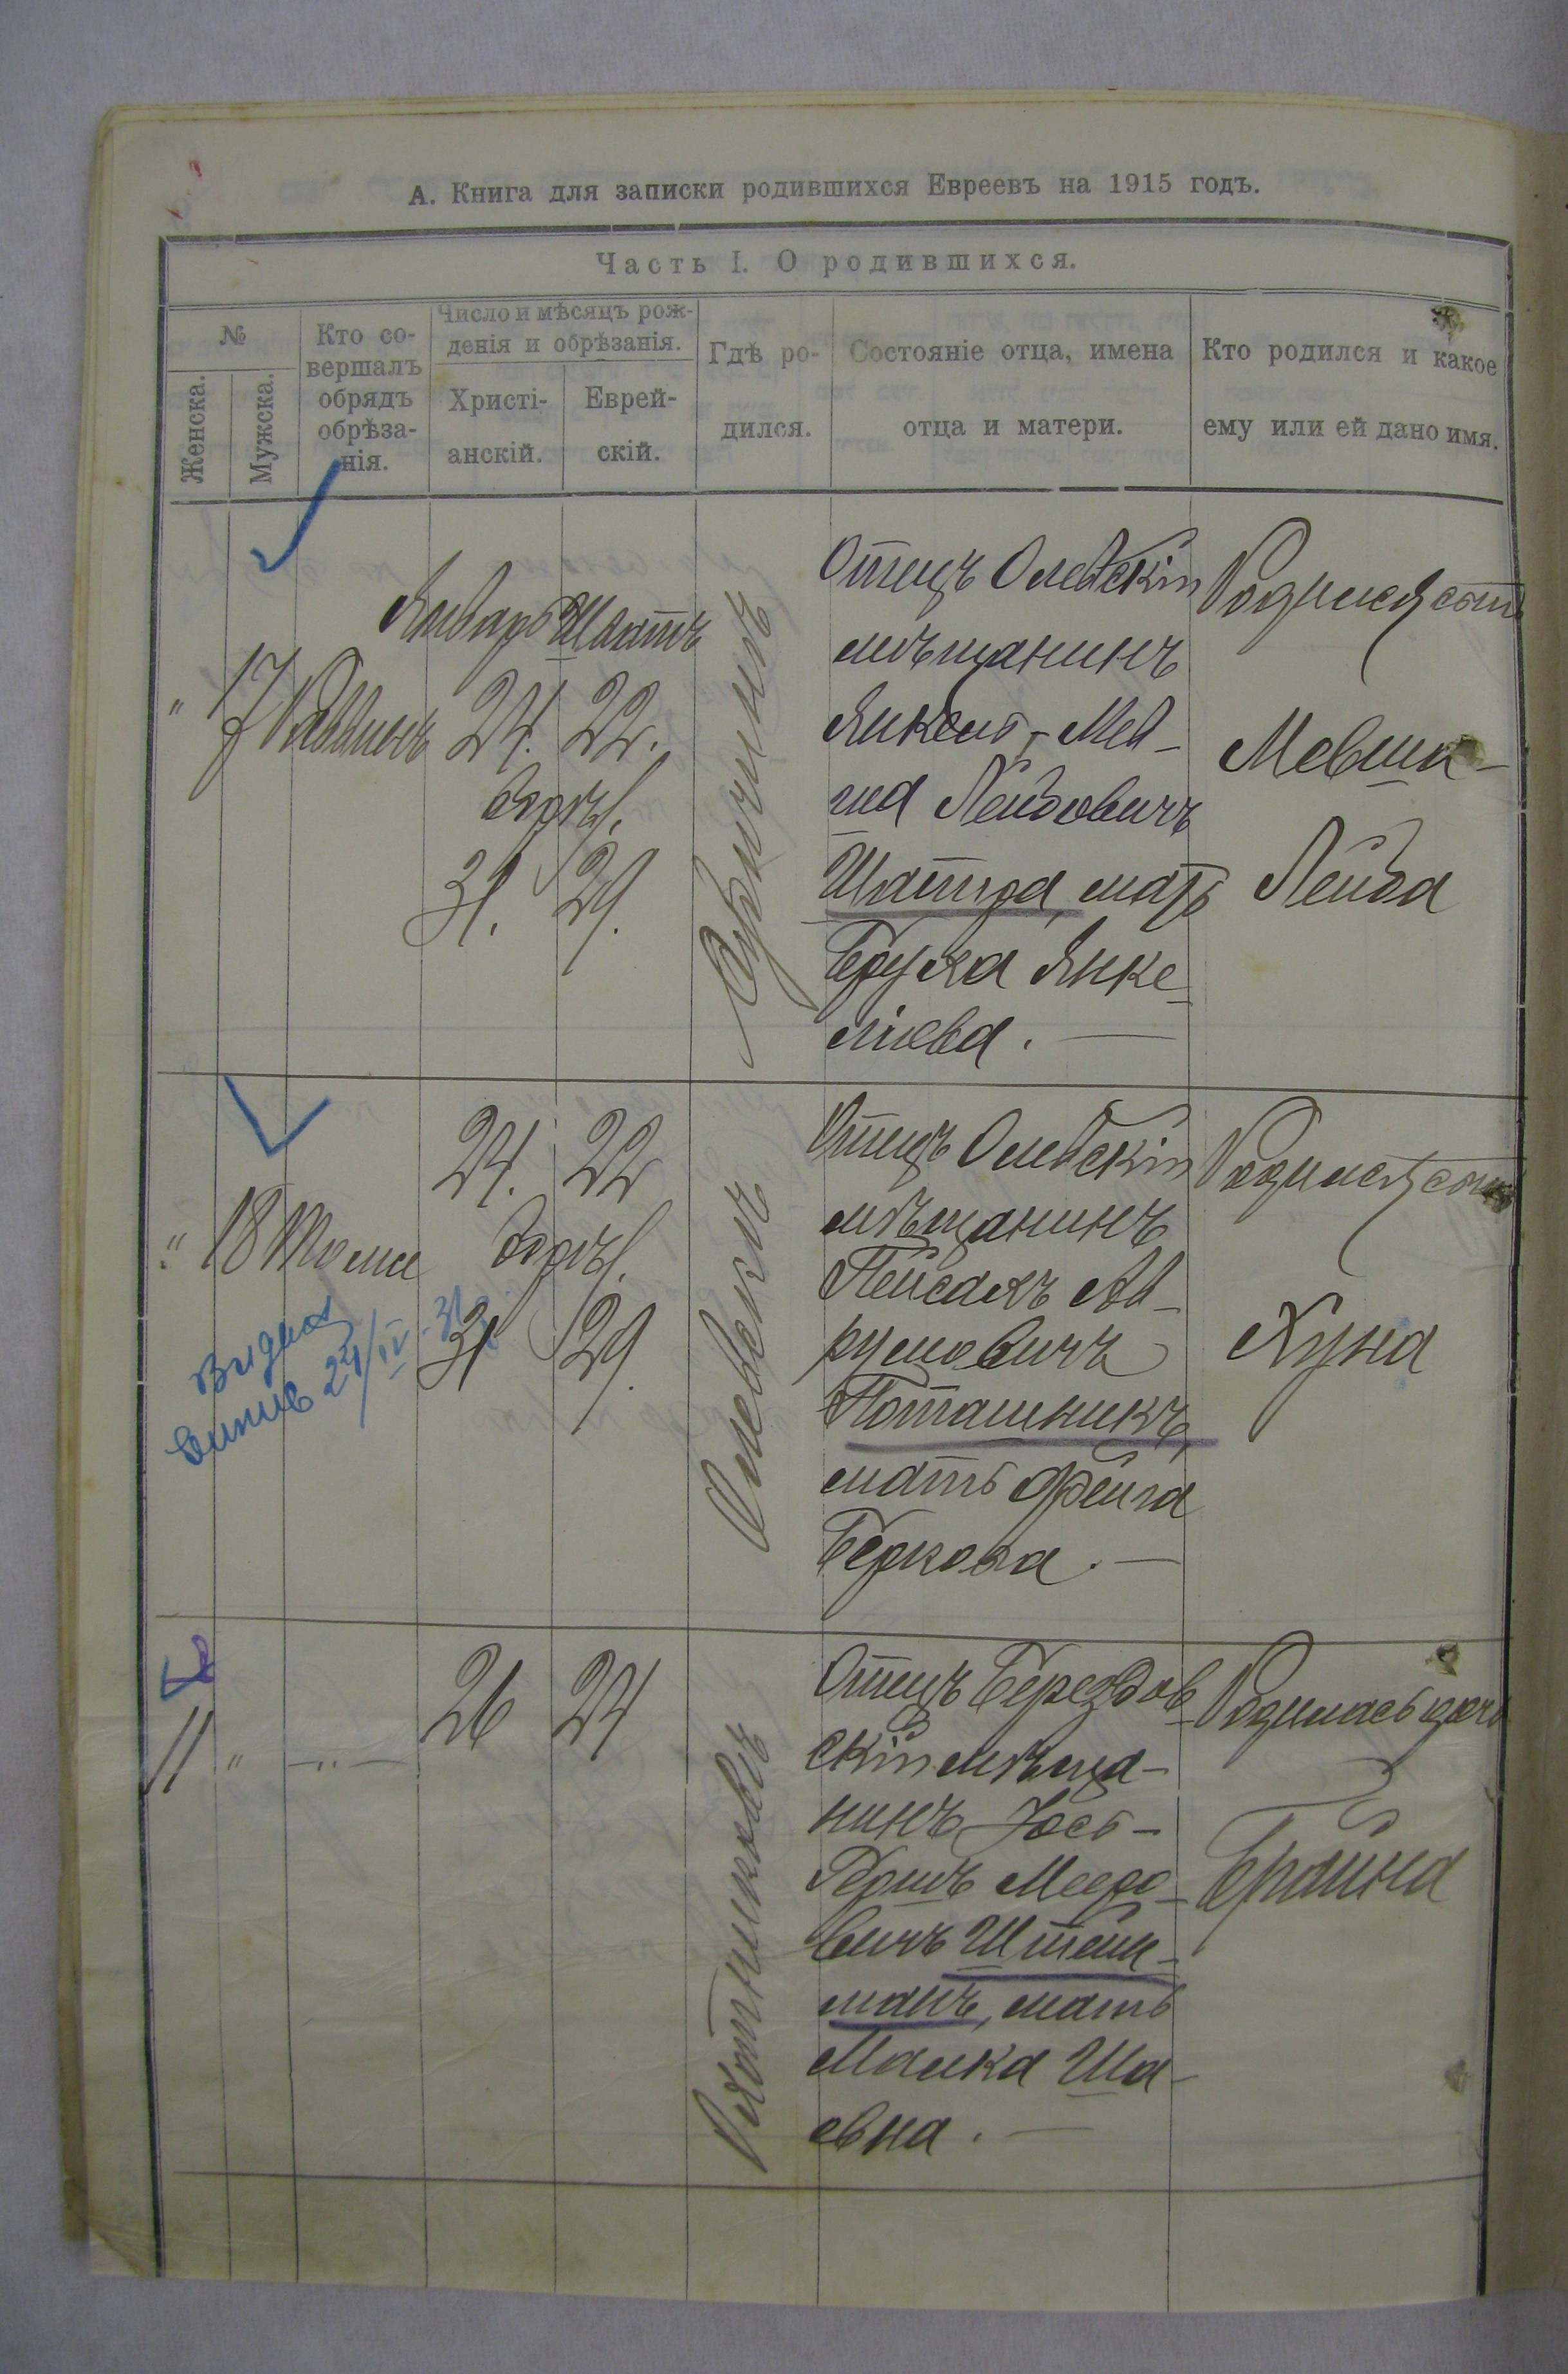 А. Книга для записки родившихся Евреевъ на 1915 годъ.
Часть I. О родившихся.
№
Женска.
Мужска.
Кто со-
вершалъ
обрядъ
обрѣза-
нія.
Число и мѣсяцъ рож-
денія и обрѣзанія.
Христі-
анскій.
Еврей-
скій.
Гдѣ ро-
дился.
Состояніе отца, имена
отца и матери.
Кто родился и какое
ему или ей дано имя.
" 17 Раввинъ
Январь Шватъ
24. 22.
обрѣ.
31. 29.
Отецъ Олевскій
мѣщанинъ
Янкель-Мев-
ша Лейбовичъ
Шапира, мать
Бруха Янке-
ліова. —
Родился сынъ
Мевша-
Лейба
" 18 Тоже
24. 22
обрѣ.
31 29.
Олевскъ
Отецъ Олевскій
мѣщанинъ
Пейсахъ Ав-
румовичъ
Поташникъ,
мать Фейга
Беркова. —
Родился сынъ
Хуна
Видано
витяг 24/IV-31
11 " —"—
26 24
Отецъ Бередов-
скій мѣща-
нинъ Іось-
Гершъ Мееро-
вичъ Штейн-
манъ, мать
Малка Ша-
евна. —
Родилась дочь
Брайна